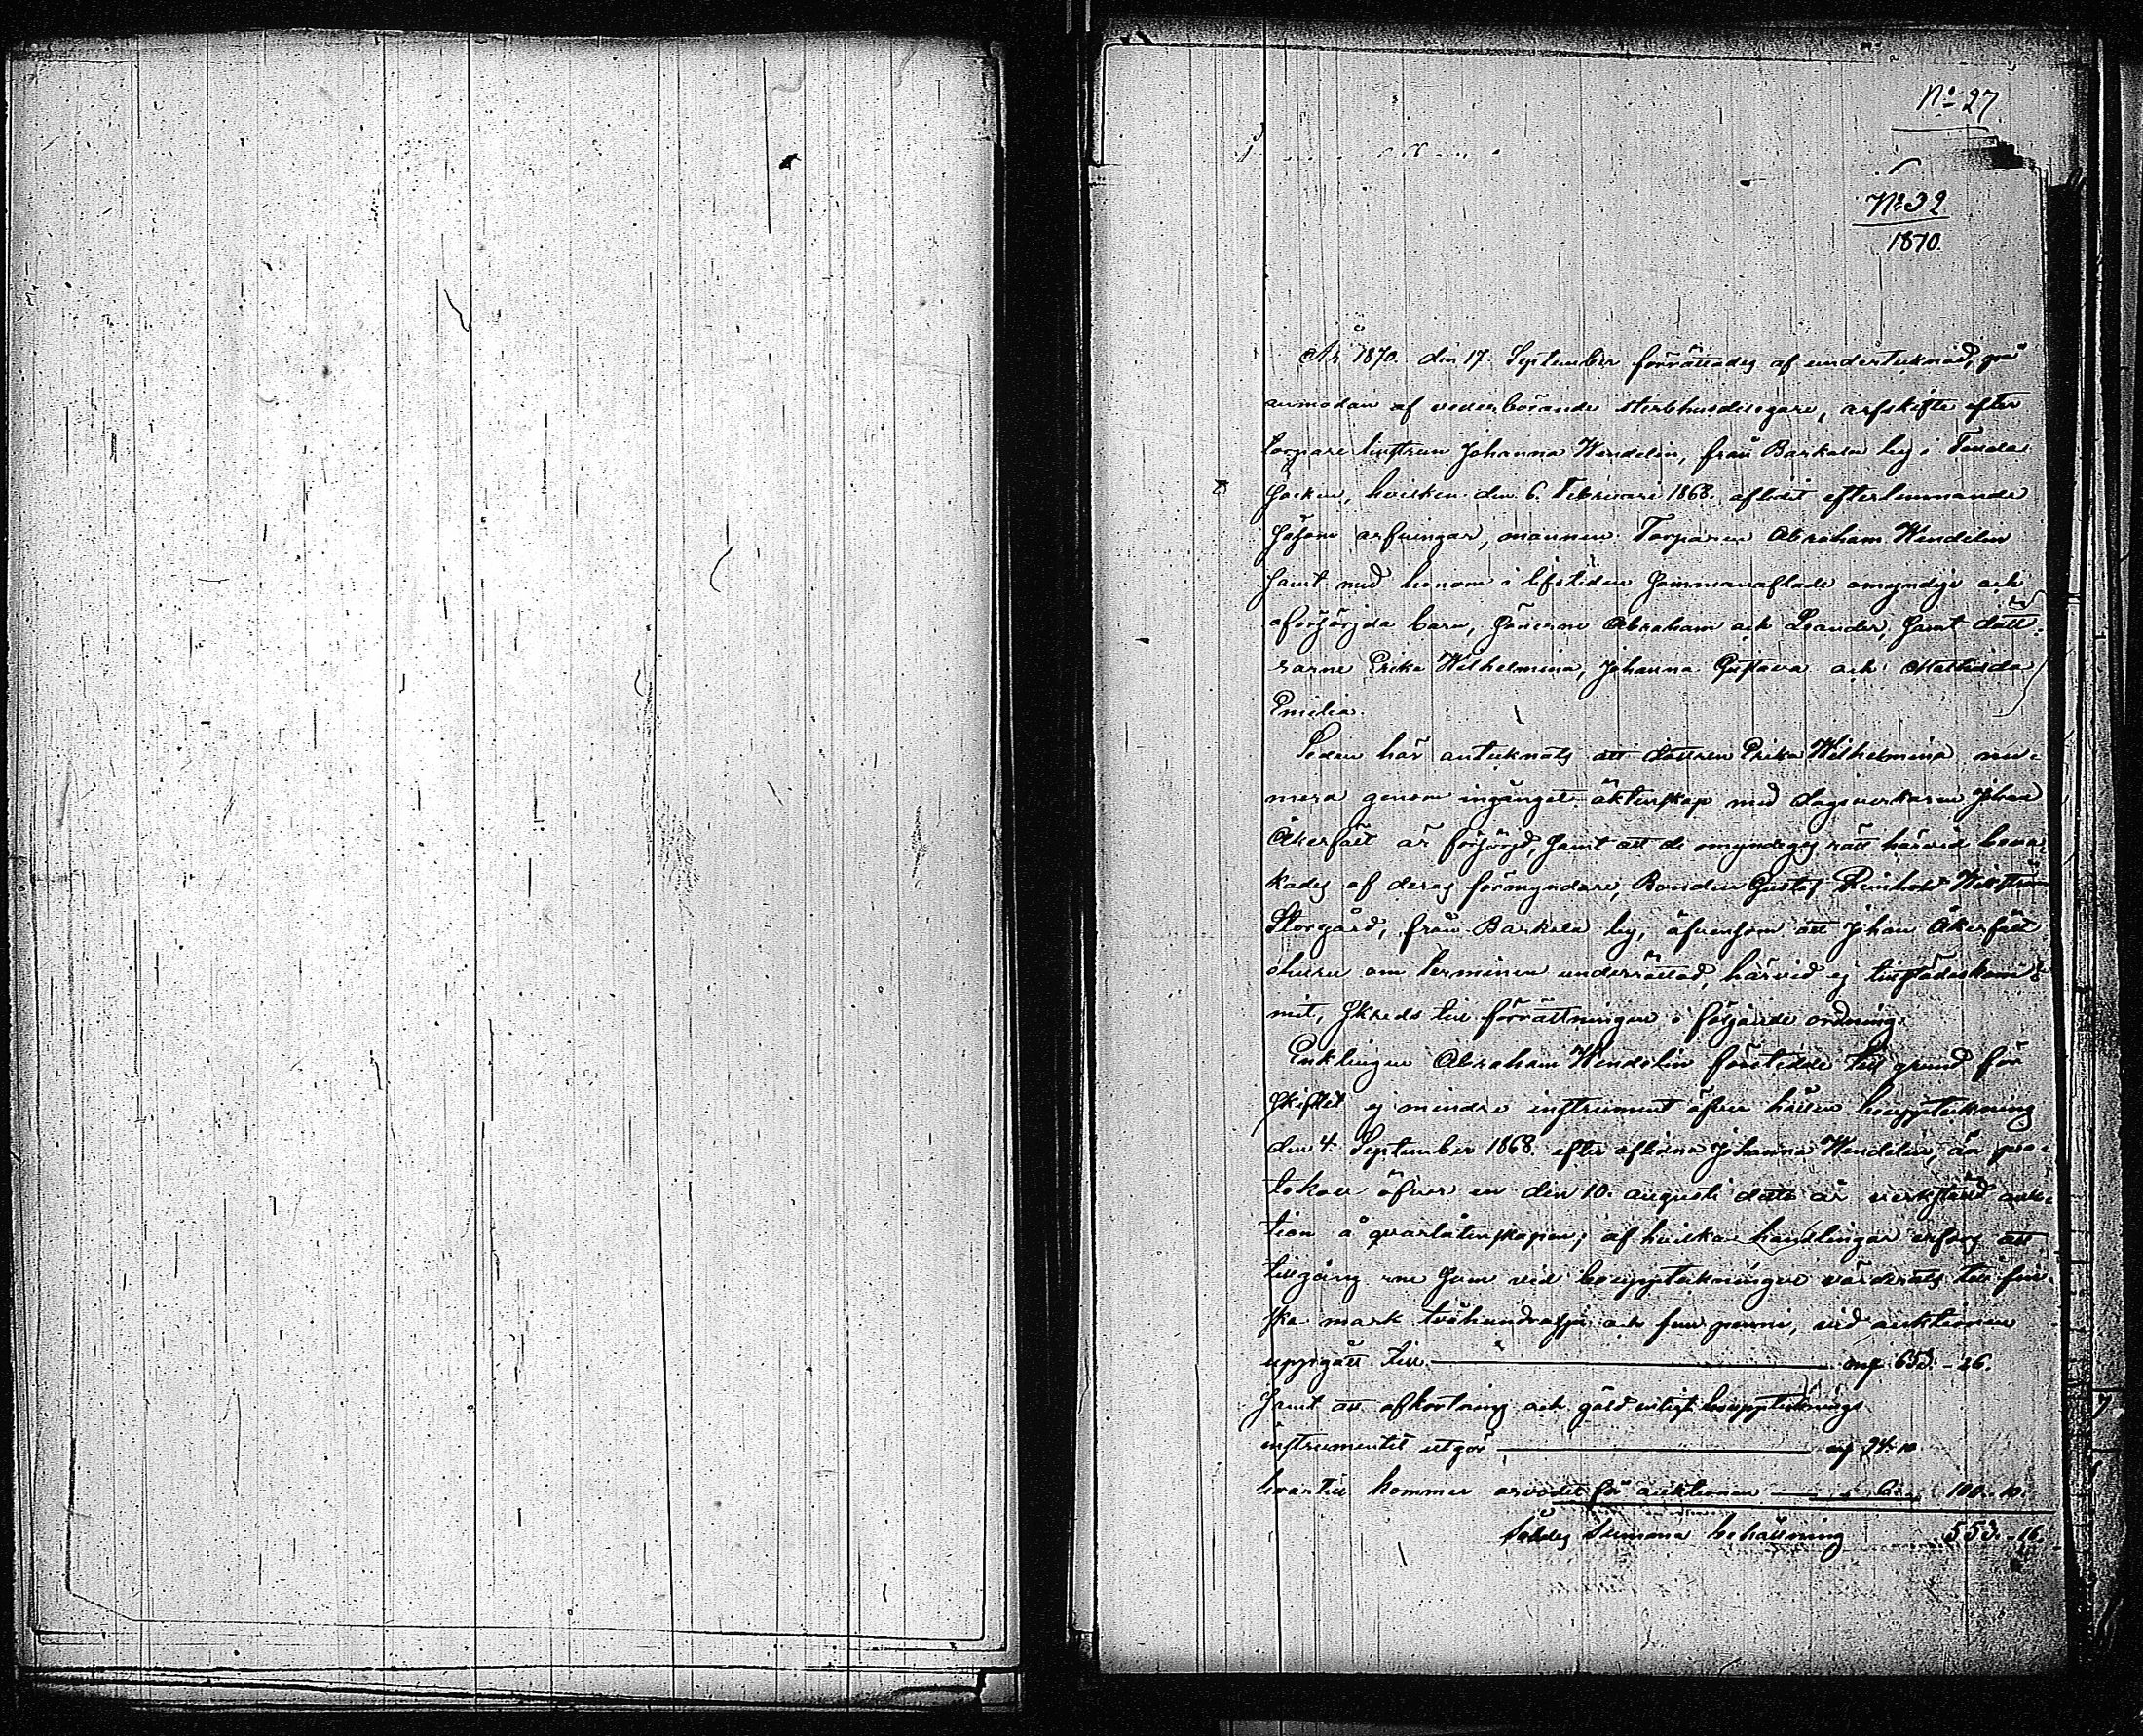 No 27
No 32
1870.
År 1870. den 17. September förrättades af undertecknad, på
anmodan af vederbörande sterbhusdelegare, arfskifte efter
torpare hustrun Johanna Wendelin, från Barkala by i Tenala
socken, hvilken den 6. Februari 1868. aflidit efterlemnande
såsom arfvingar, mannen Torparen Abraham Wendelin
samt med honom i lifstiden sammanaflade omyndige och
oförsörjda barn, sönerne Abraham och Leander, samt dött-
rarne Erika Wilhelmina, Johanna Gustava och Mathilda
Emilia.
Sedan här antecknats att dottren Erika Wilhelmina nu-
mera genom ingånget äktenskap med dagsverkaren Johan
Åkerfält är försörjd, samt att de omyndiges rätt härvid beva-
kades af deras förmyndare, Bonden Gustaf Reinhold Wikström
Storgård, från Barkala by, äfvensom att Johan Åkerfält
ehuru om terminen underrättad, härvid ej tillstädeskom-
mit, skreds till förrättningen i följande ordning:
Enklingen Abraham Wendelin företedde till grund för
skiftet ej mindre instrument öfver hållen bouppteckning
den 4. September 1868. efter aflidna Johanna Wendelin, än pro-
tokoll öfver en den 10. augusti detta år verkställd auk-
tion å qvarlåtenskapen; af hvilka handlingar erfors att
tillgång en som vid bouppteckningen värderats till fin-
ska mark tvåhundrasju och fem penni, vid auktionen
uppgått till mf 653.-26.
samt att afkortning och gäld enligt bouppteckings
instrumentet utgör mf 94.10
hvartill kommer arvodet för auktionen 6. 100.10.
således Summa behållning 553.-16